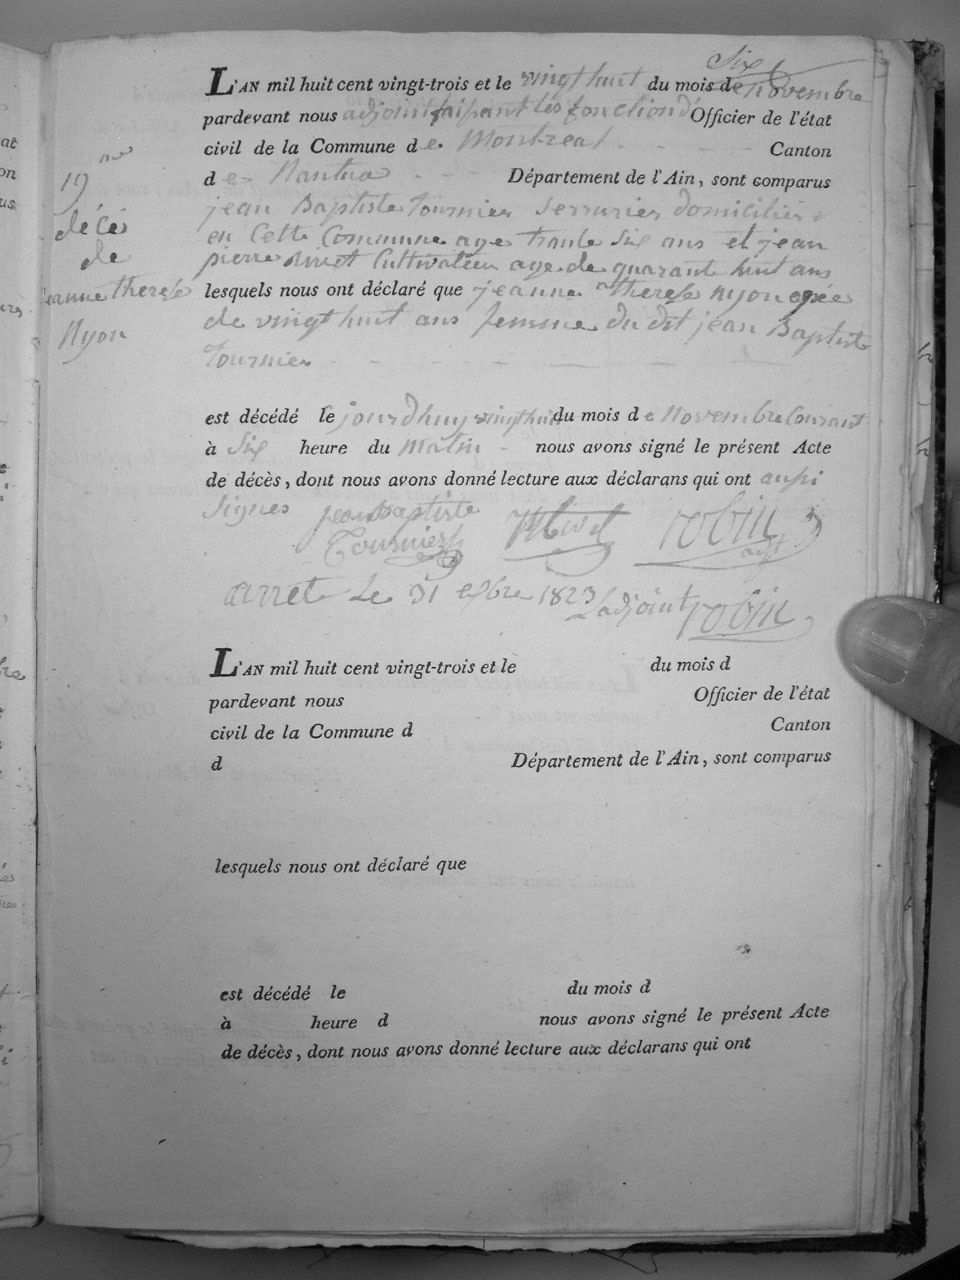 Six
L'AN mil huit cent vingt-trois et le vingt huit du mois de novembre
pardevant nous adjoint faisant les fonction d' Officier de l'état
civil de la Commune de Montreal Canton
de Nantua Département de l'Ain, sont comparus
jean Baptiste Tournier Serrurier domicilier
en Cette Commune age trante Six ans et jean
pierre Cultivateur age de quarant huit ans
lesquels nous ont déclaré que jeanne therese Nyon agée
de vingt huit ans femme du dit jean Baptiste
Tournier
est décédé le jourdhuy vingt huit du mois de Novembre Courant
à Six heure du Matin nous avons signé le présent Acte
de décès, dont nous avons donné lecture aux déclarans qui ont aussi
Signes jean Baptiste robin
Tournier adjt
arret Le 31 1823 Ladjoint robin
n°
19
décé
de
jeanne therese
Nyon
L'AN mil huit cent vingt-trois et le du mois d
pardevant nous Officier de l'état
civil de la Commune d Canton
d Département de l'Ain, sont comparus
lesquels nous ont déclaré que
est décédé le du mois d
à heure d nous avons signé le présent Acte
de décès, dont nous avons donné lecture aux déclarans qui ont